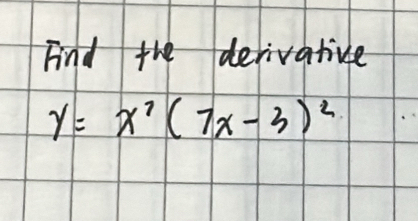 Find the derivative
y = x⁷ (7x - 3)²